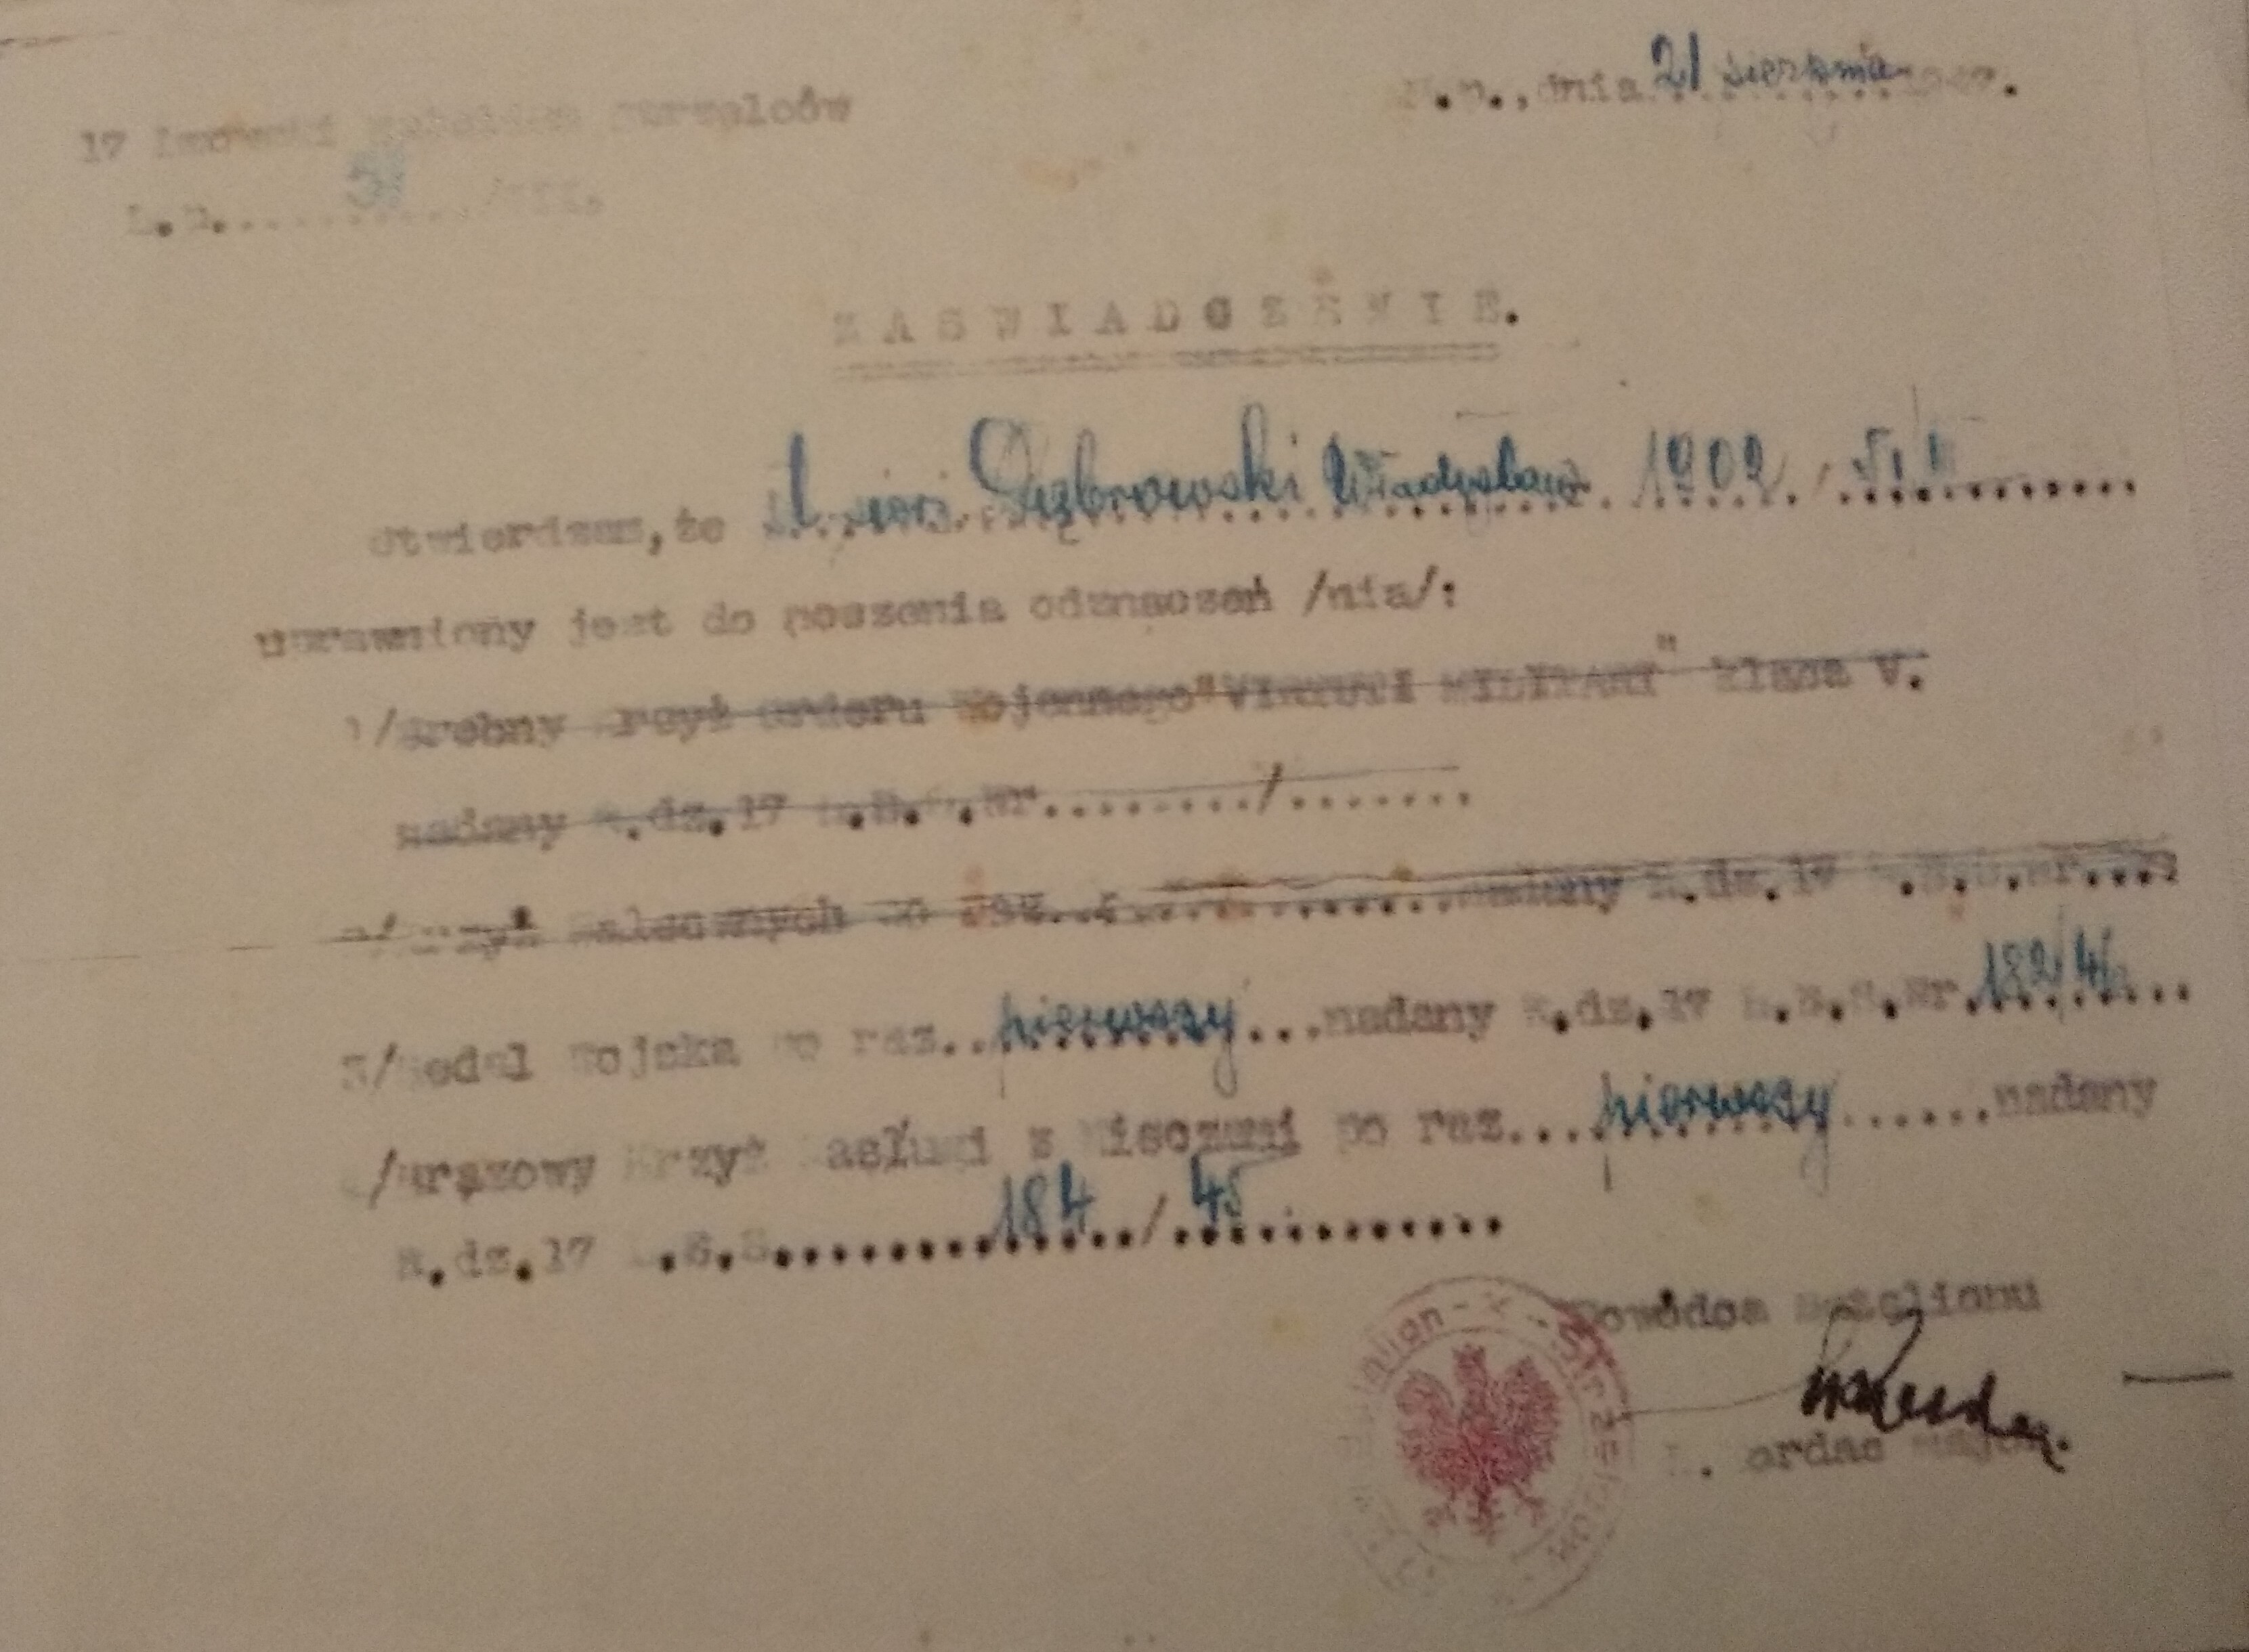 17 Lwowski Batalion Strzelców
M.p., dnia 21 sierpnia
L.D.
ZASWIADCZENIE.
Stwierdzam, że Dąbrowski Władysław 1902
uprawniony jest do noszenia odznaczeń /nia/:
1/Srebny Krzyż Orderu Wojennego "VIRTUTI MILITARI" klasa V.
nadany R.dz.17 L.B.S.Nr......../.......
2/Krzyż Walecznych po raz...............nadany R.dz.17 L.B.S.Nr....
3/Medal Wojska po raz..pierwszy...nadany R.dz.17 L.B.S.Nr.182/46...
4/Brązowy Krzyż Zasługi z Mieczami po raz...pierwszy......nadany
R.dz.17 L.B.S..........184../.45............
Dowódca Batalionu
Batalion - X - Strzelców